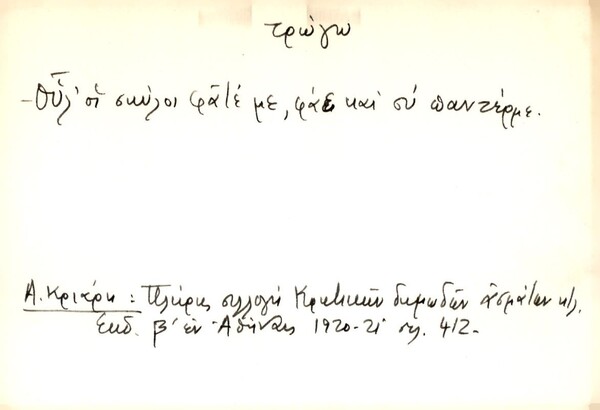 τρώγω
- Οὗλ' οἱ σκύλοι φᾶτέ με, φάε καὶ σύ παντέρμε.
Α. Κριάρη: Πλήρης συλλογή Κρητικῶν δημωδῶν ἀσμάτων κτλ.
ἐκδ. β' ἐν Ἀθήναις 1920-21 σελ. 412-